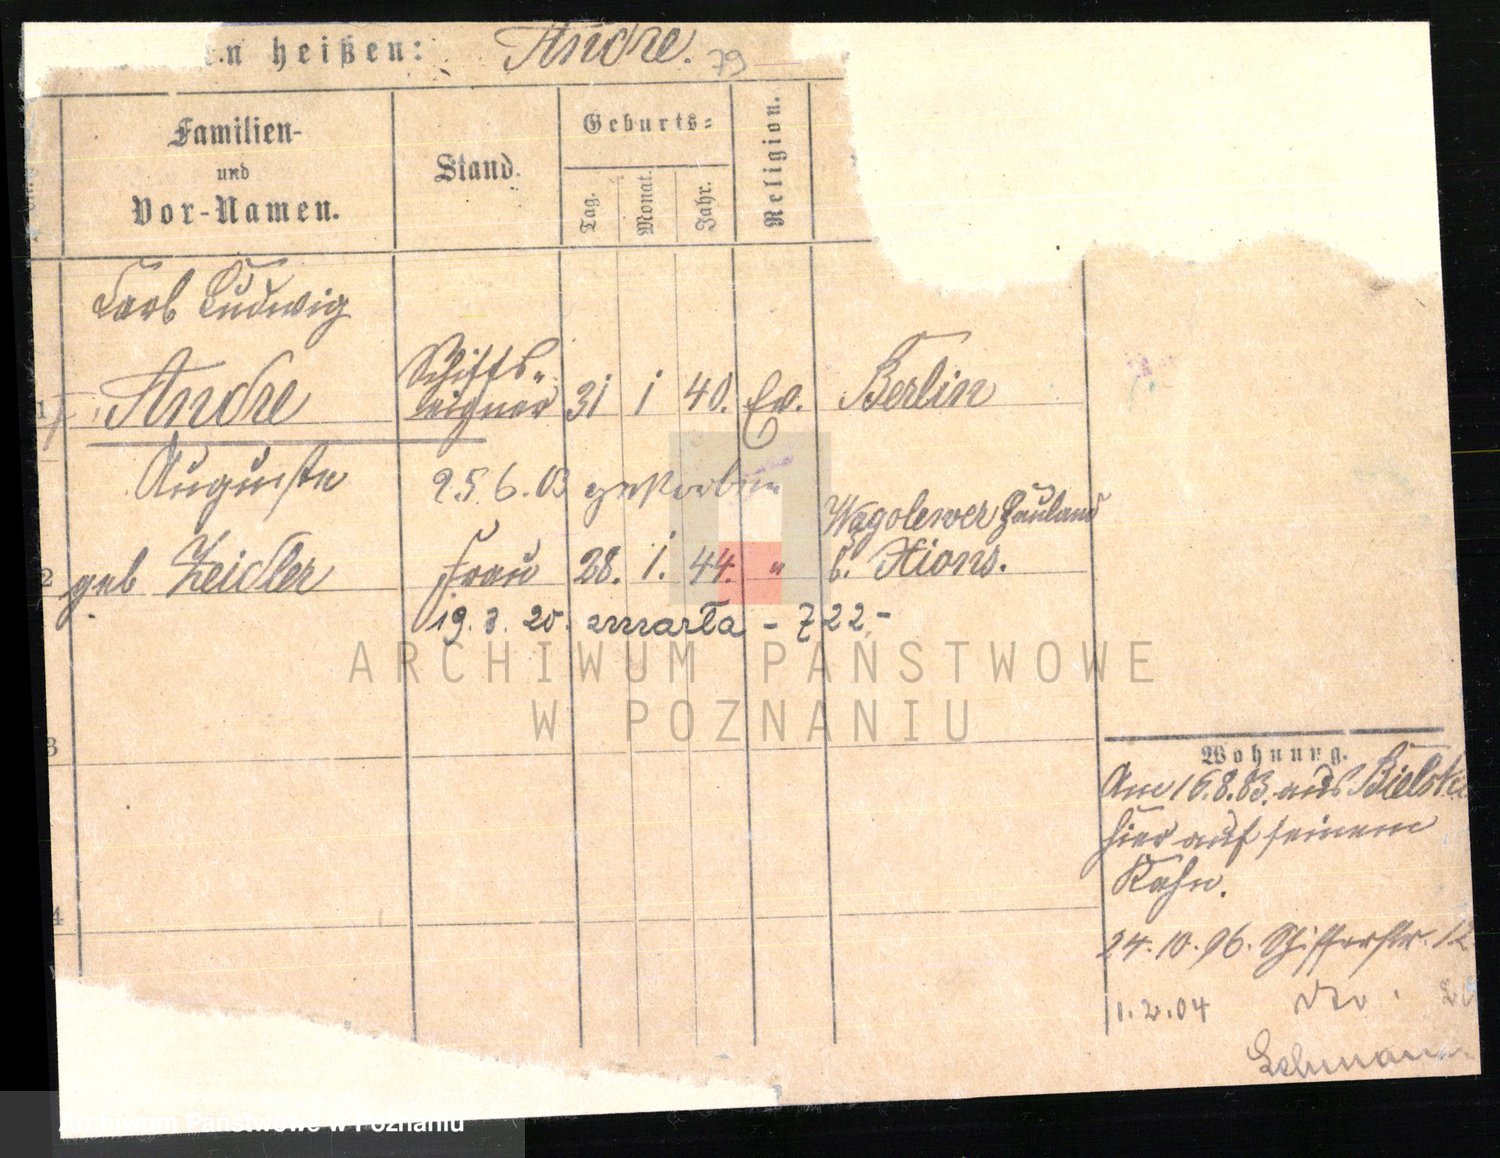 en heißen: Andre. 79
Familien-
und
Vor-Namen.
Stand.
Geburts=
Tag.
Monat.
Jahr.
Religion.
Carl Ludwig
1 Andre
Schiffs-
eigner 31 1 40. Ev. Berlin
Auguste 25.6.03 gestorben
2 geb Zeidler Frau 28. 1. 44. " Wygolewer Hauland
b. Xions.
19. 3. 20. zmarła - 722 -
3
4
Wohnung.
Am 16.8.83. aus Bielsko
hier auf seinem
Kahn.
24.10.96. Schifferstr. 12
1.2.04 dto
Lehmann
ARCHIWUM PAŃSTWOWE
W POZNANIU
Archiwum Państwowe w Poznaniu